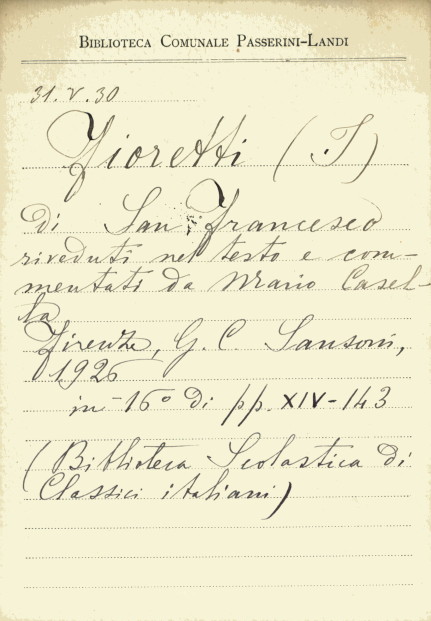 BIBLIOTECA COMUNALE PASSERINI-LANDI
31.V.30
Fioretti (I)
di San Francesco
riveduti nel testo e com-
mentati da Mario Casel-
la
Firenze, G. C. Sansoni,
1926
in-16° di pp. XIV-143
(Biblioteca Scolastica di
Classici italiani)